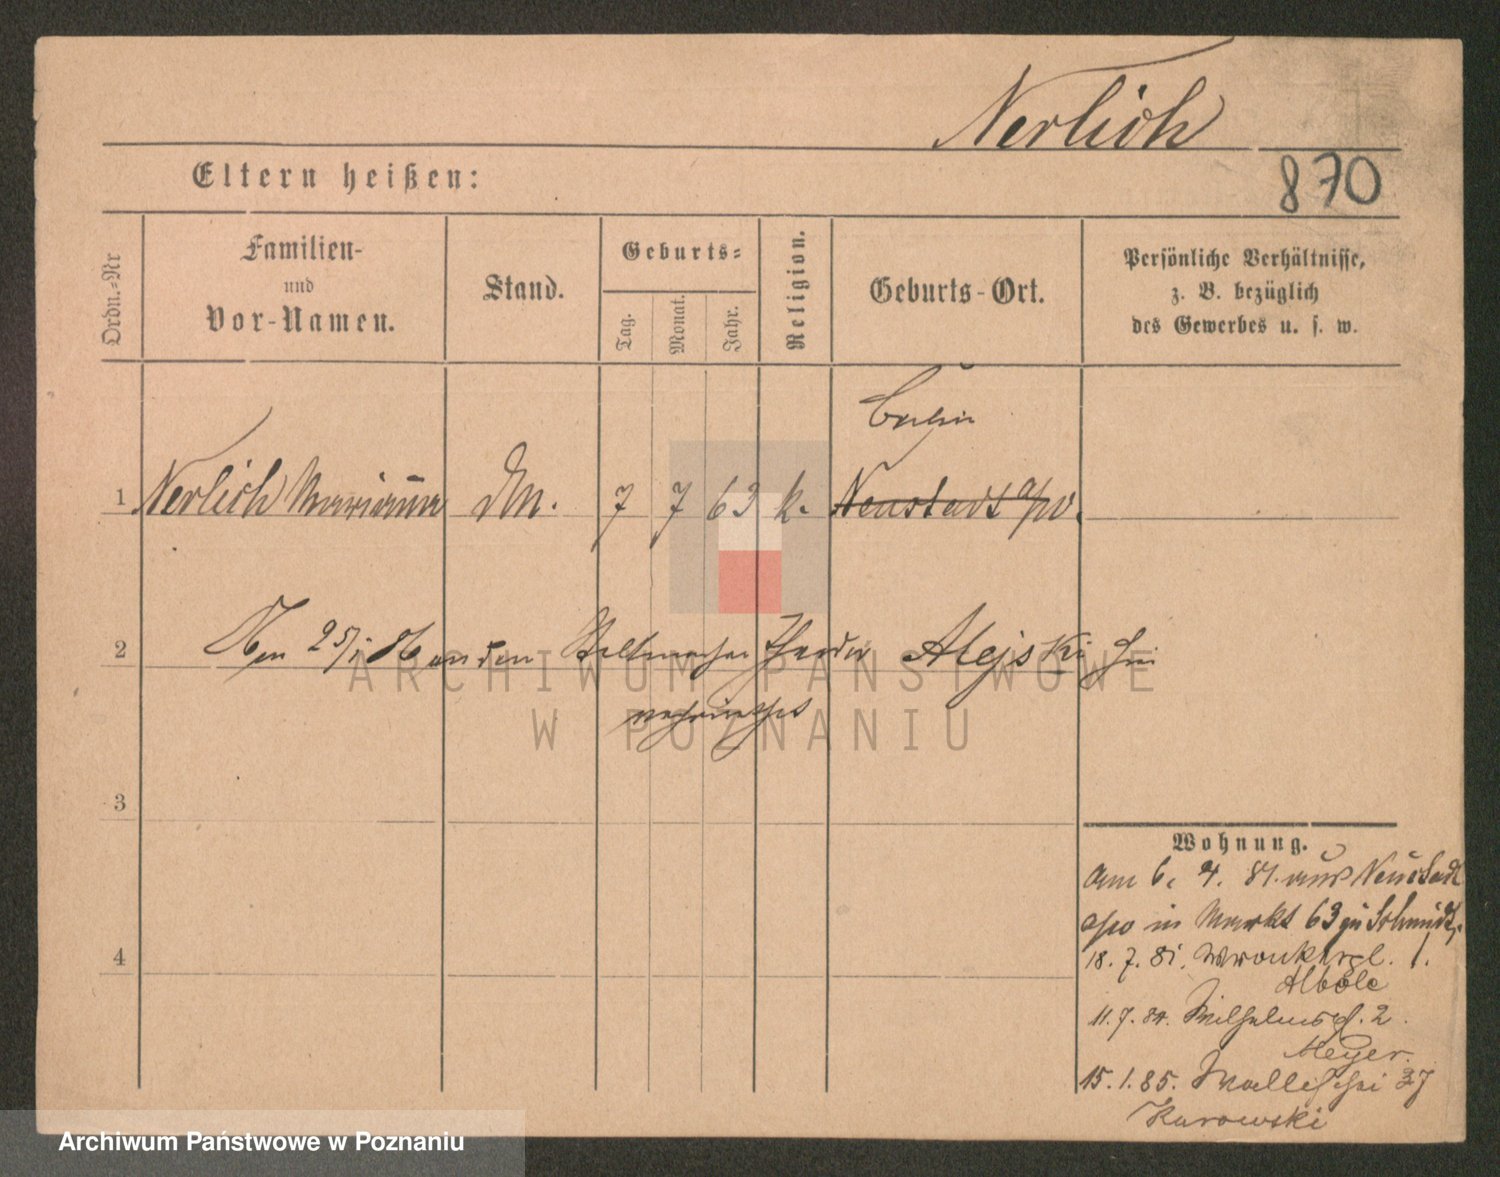 Nerlich
870
Eltern heißen:
Ordn.-Nr
Familien-
und
Vor-Namen.
Stand.
Geburts-
Tag.
Monat.
Jahr.
Religion.
Geburts-Ort.
Persönliche Verhältnisse,
z. B. bezüglich
des Gewerbes u. s. w.
Berlin
1 Nerlich Marianna DM. 7 7 63 k. Neustadt a/W.
2 Am 25/1 86 an den Theodor Alejski hier
verheirathet
3
4
Wohnung.
Am 6. 4. 81. aus Neustadt
a/W in Markt 63 zu Schmidt.
18. 7. 81. Wronkerpl. 1.
11. 7. 84. Wilhelmspl. 2.
Meyer.
15. 1. 85. Wallischei 37
Karowski
ARCHIWUM PAŃSTWOWE
W POZNANIU
Archiwum Państwowe w Poznaniu